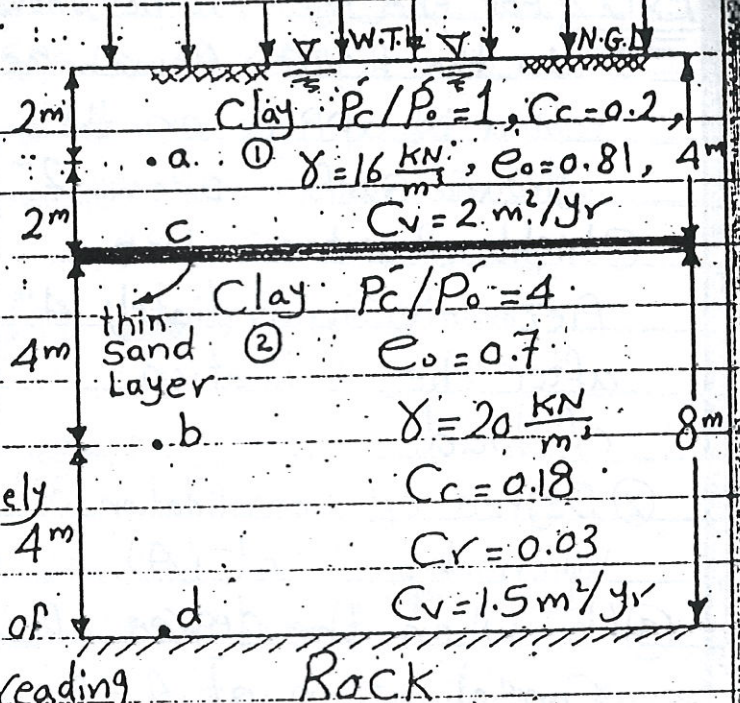 W.T.L N.G.L
2m Clay Pć/Pó=1, Cc=0.2,
.a. ① γ=16 KN/m³, e₀=0.81, 4m
2m c Cv=2 m²/yr
thin Sand Layer
Clay ② Pć/Pó=4
e₀=0.7
4m γ=20 KN/m³ 8m
.b
Cc=0.18
ely
4m Cr=0.03
of .d Cv=1.5m²/yr
reading Rock